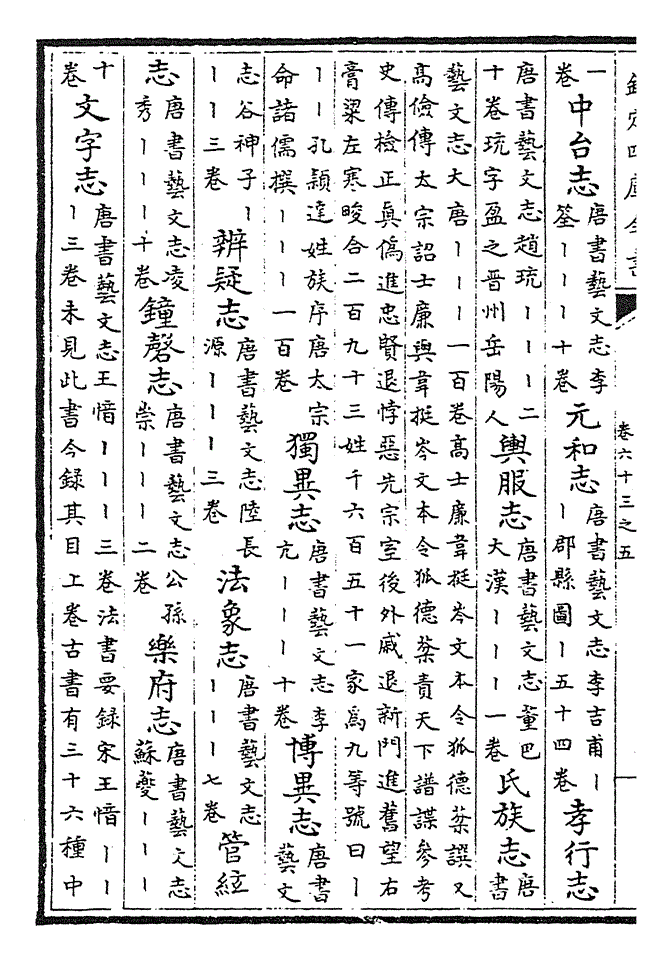 欽定四庫全書
卷六十三之五
一卷中台志唐書藝文志李筌丨丨丨十卷元和志唐書藝文志李吉甫丨丨郡縣圖丨五十四卷孝行志
唐書藝文志趙珫丨丨丨二十卷珫字盈之晉州岳陽人輿服志唐書藝文志董巴大漢丨丨丨一卷氏族志唐書
藝文志大唐丨丨丨一百卷高士廉韋挺岑文本令狐德棻譔又高儉傳太宗詔士廉與韋挺岑文本令狐德棻責天下譜諜參考
史傳檢正真偽進忠賢退悖惡先宗室後外戚退新門進舊望右膏梁左寒畯合二百九十三姓千六百五十一家為九等號曰丨
丨丨孔穎達姓族序唐太宗命諸儒撰丨丨丨一百卷獨異志唐書藝文志李亢丨丨丨十卷博異志唐書藝文
志谷神子丨丨丨三卷辨疑志唐書藝文志陸長源丨丨丨三卷法象志唐書藝文志丨丨丨七卷管絃
志唐書藝文志凌秀丨丨丨十卷鐘磬志唐書藝文志公孫崇丨丨丨二卷樂府志唐書藝文志蘇夔丨丨丨
十卷文字志唐書藝文志王愔丨丨丨三卷法書要録宋王愔丨丨丨三卷未見此書今録其目上卷古書有三十六種中